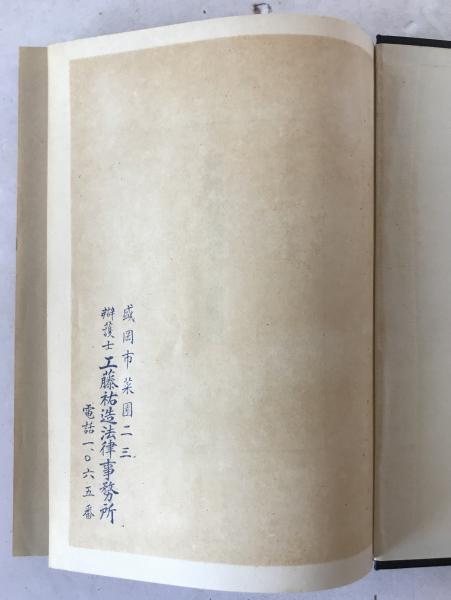 盛岡市菜園二三
辯護士 工藤祐造法律事務所
電話一、〇六五番